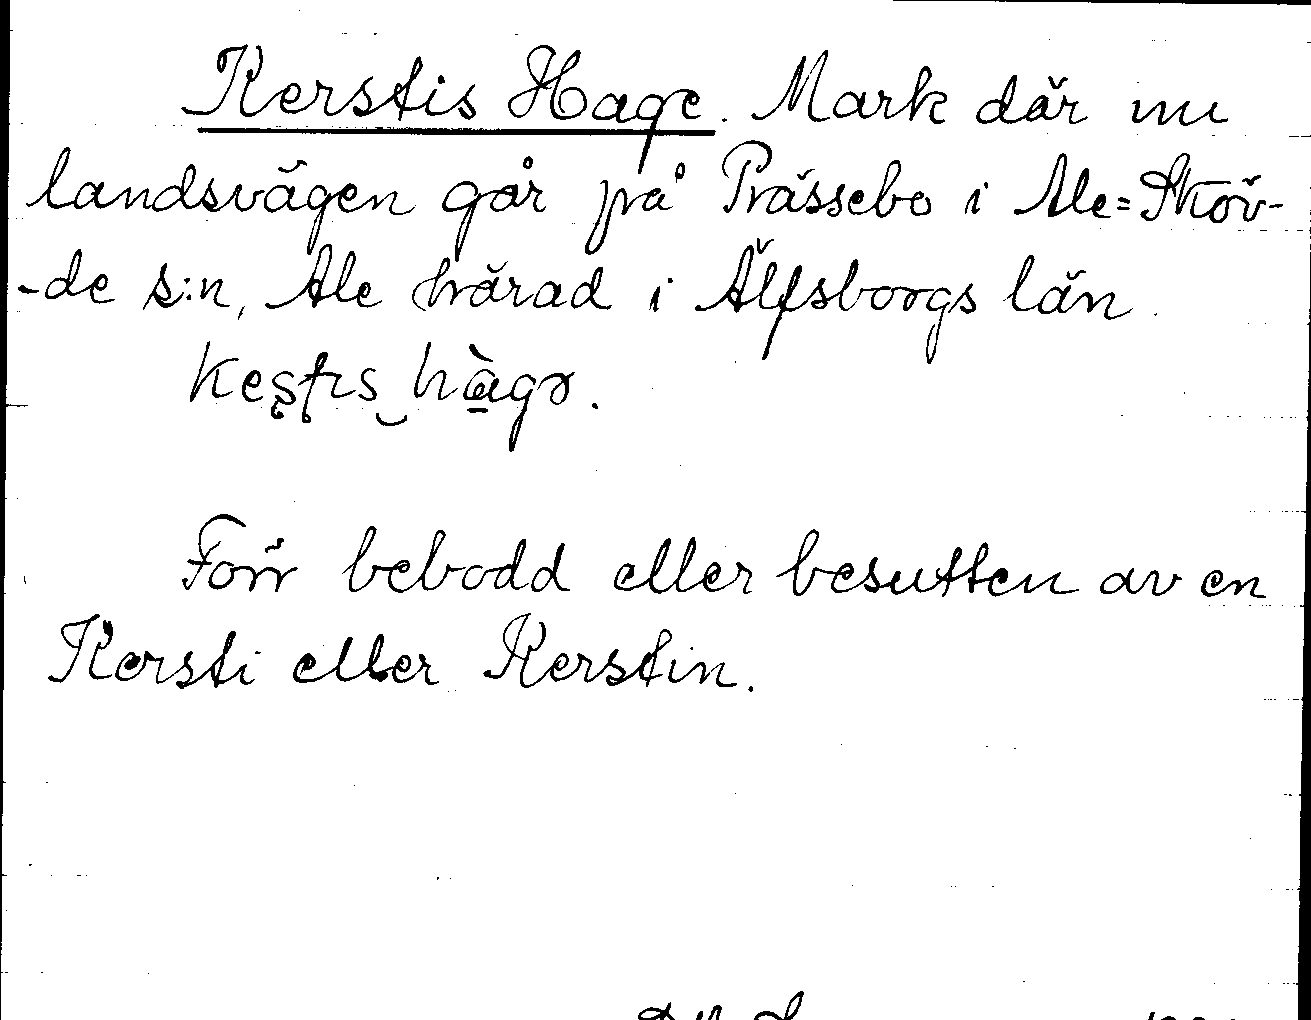 Kerstis Hage. Mark där nu
landsvägen går på Prässebo i Ale=Sköv-
-de s:n, Ale härad i Älfsborgs län.
Förr bebodd eller besutten av en
Kersti eller Kerstin.